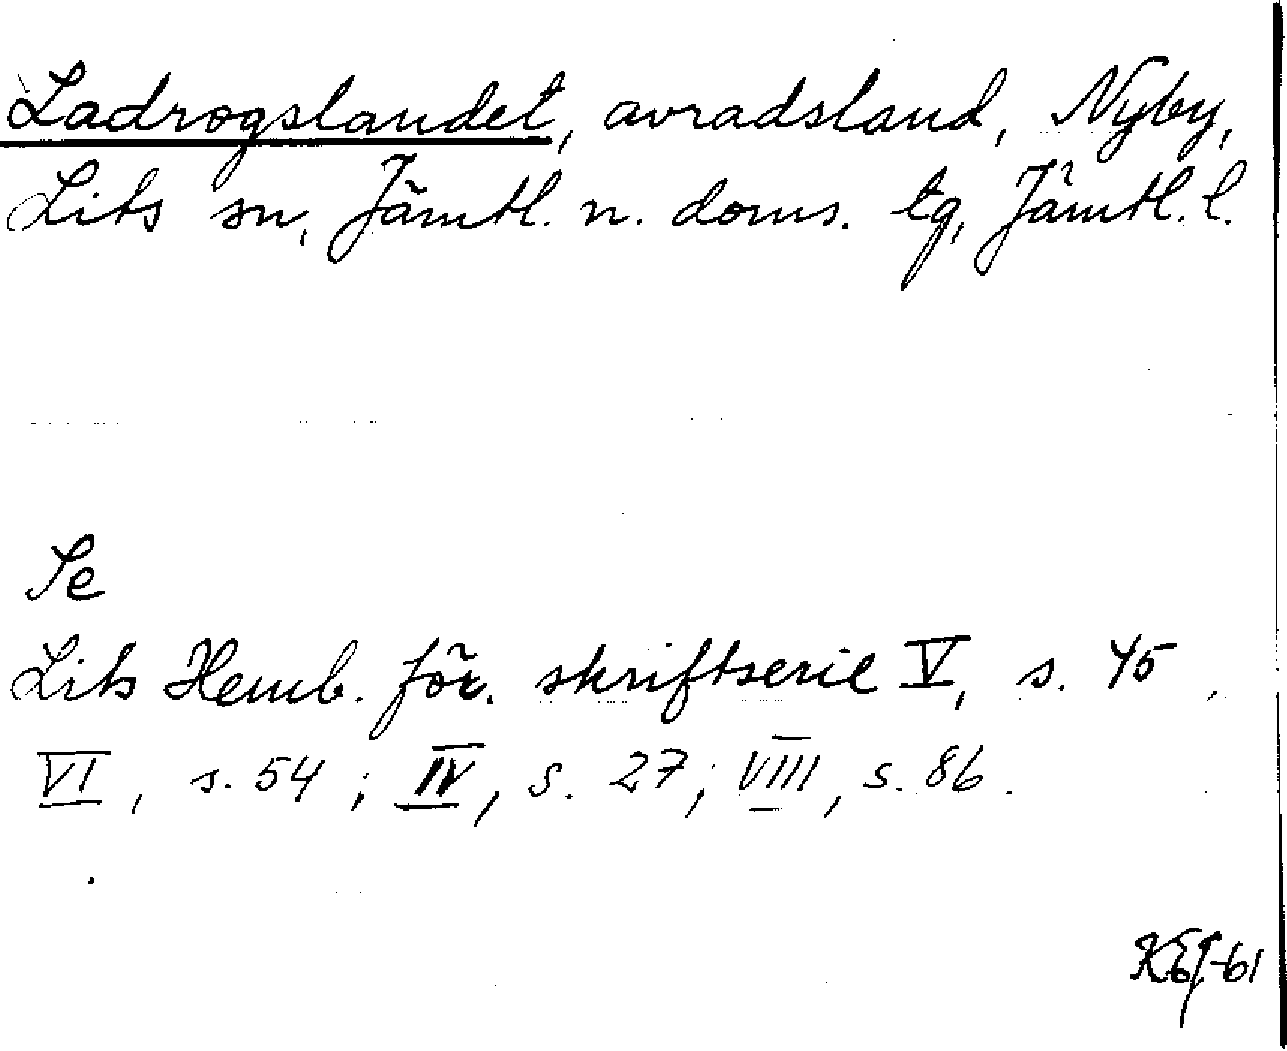 Ladrogslandet, avradsland, Nyby,
Lits sn, Jämtl. n. doms. tg, Jämtl. l.
Se
Lits Hemb. för. skriftserie V, s. 45,
VI, s. 54; IV, s. 27; VIII, s. 86.
KEJ-61